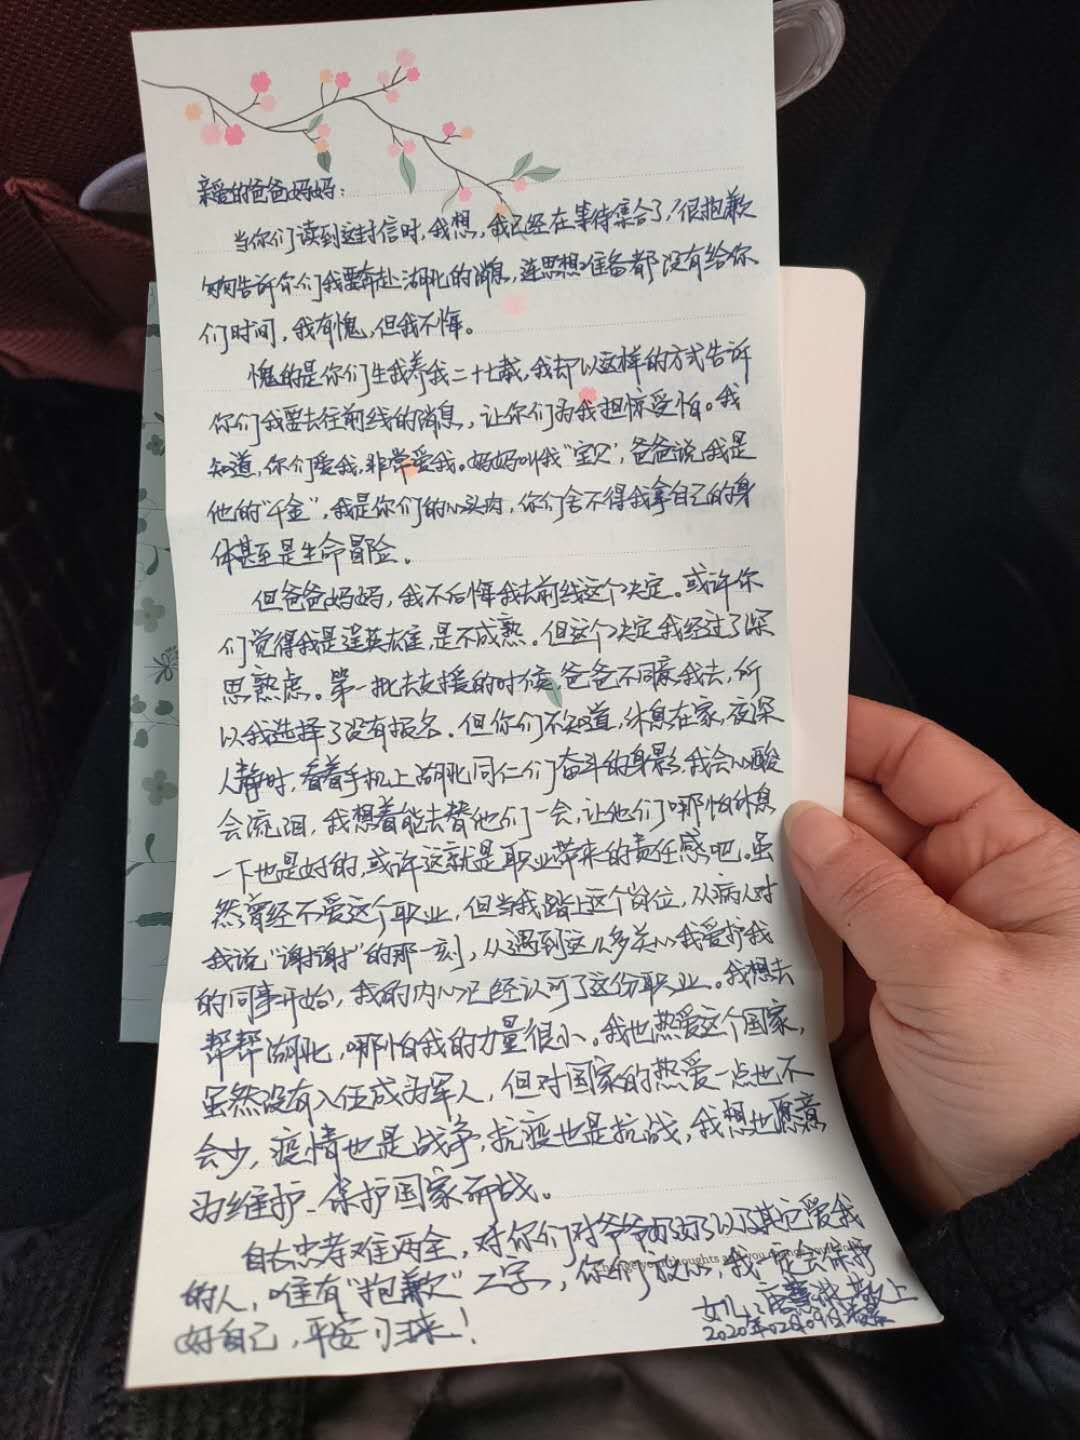 亲爱的爸爸妈妈：
当你们读到这封信时，我想，我已经在等待集合了！很抱歉
匆匆告诉你们我要奔赴湖北的消息，连思想准备都没有给你
们时间，我有愧，但我不悔。
愧的是你们生我养我二十七载，我却以这样的方式告诉
你们我要去往前线的消息，让你们为我担惊受怕。我
知道，你们爱我，非常爱我。妈妈叫我“宝贝”，爸爸说我是
他的“千金”，我是你们的心头肉，你们舍不得我拿自己的身
体甚至是生命冒险。
但爸爸妈妈，我不后悔我去前线这个决定。或许你
们觉得我是逞英雄，是不成熟。但这个决定我经过了深
思熟虑。第一批去支援的时候，爸爸不同意我去，所
以我选择了没有报名。但你们不知道，休息在家，夜深
人静时，看着手机上湖北同仁们奋斗的身影，我会心酸
会流泪，我想着能去替他们一会，让他们哪怕休息
一下也是好的，或许这就是职业带来的责任感吧。虽
然曾经不爱这个职业，但当我踏上这个岗位，从病人对
我说“谢谢”的那一刻，从遇到这么多关心我爱护我
的同事开始，我的内心已经认可了这份职业。我想去
帮帮湖北，哪怕我的力量很小。我也热爱这个国家，
虽然没有入伍成为军人，但对国家的热爱一点也不
会少，疫情也是战争，抗疫也是抗战，我想也愿意
为维护、保护国家而战。
自古忠孝难两全，对你们对爷爷奶奶以及其它爱我
的人，唯有“抱歉”二字，你们放心，我一定会保护
好自己，平安归来！
女儿：敬上
2020年02月09日